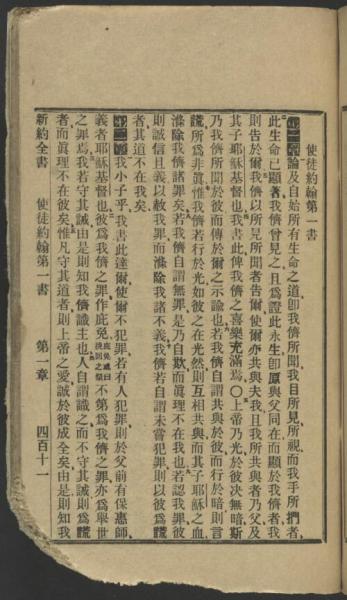 使徒約翰第一書
第一章論及自始所有生命之道卽我儕所聞我目所見所視而我手所捫者
此生命已顯著我儕曾見之且爲證此永生卽原與父同在而顯於我儕者我
則告於爾我儕以所見所聞者告爾使爾亦共與夫我且我所共與者乃父及
其子耶穌基督也我書此俾我儕之喜樂充滿焉〇上帝乃光於彼決無暗斯
乃我儕所聞於彼而傳於爾之示諭也若我儕自謂共與於彼而行於暗則言
謊所爲非眞惟我儕若行於光如彼之在光然則互相共與而其子耶穌之血
滌除我儕諸罪矣若我儕自謂無罪是乃自欺而眞理不在我也若認我罪彼
則誠信且義以赦我罪而滌除我諸不義我儕若自謂未嘗犯罪則以彼爲謊
者其道不在我矣
第二章我小子乎我書此達爾使爾不犯罪若有人犯罪則於父前有保惠師
義者耶穌基督也彼爲我儕之罪作庇免庇免或曰挽回之祭不第爲我儕之罪亦爲舉世
之罪焉我若守其誡由是則知我儕識主也人自謂識之而不守其誡則爲謊
者而眞理不在彼矣惟凡守其道者則上帝之愛誠於彼成全矣由是則知我
新約全書　使徒約翰第一書　第一章　四百十一